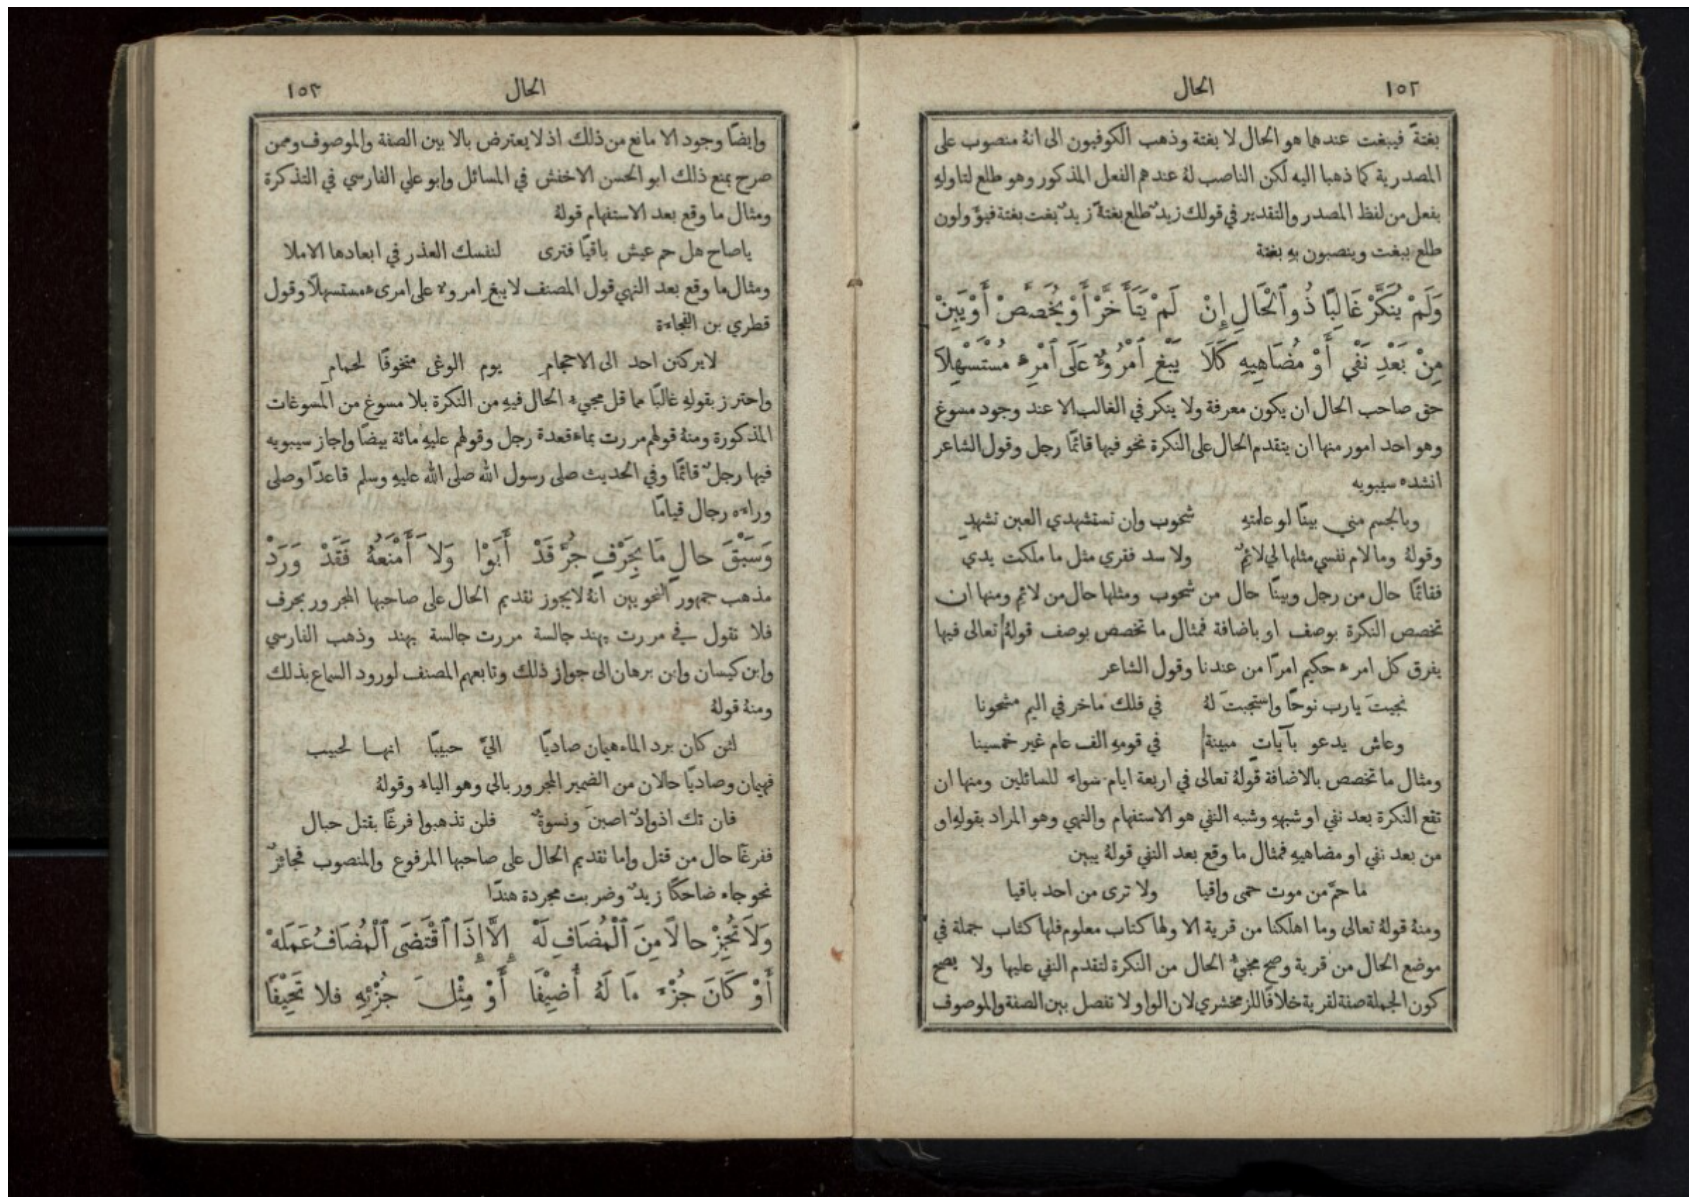 ١٥٢ الحال
بغتةً فيبغت عندهما هو الحال لا بغتة وذهب الكوفيون الى انهُ منصوب على
المصدرية كما ذهبا اليه لكن الناصب لهُ عندهم الفعل المذكور وهو طلع لتاوله
بفعل من لفظ المصدر والتقدير في قولك زيدٌ طلع بغتةً زيدٌ بغت بغتة فيؤَولون
طلع ببغت وينصبون به بغتة
وَلَمْ يُنَكَّرْ غَالِبًا ذُو ٱلْحَالِ إِنْ لَمْ يَتَأَخَّرْ أَوْ يُخَصَّصْ أَوْ يَبِنْ
مِنْ بَعْدِ نَفْيٍ أَوْ مُضَاهِيهِ كَلَا يَبْغِ ٱمْرُوءٌ عَلَى ٱمْرِءٍ مُسْتَسْهِلَا
حق صاحب الحال ان يكون معرفة ولا ينكر في الغالب الا عند وجود مسوغ
وهو احد امور منها ان يتقدم الحال على النكرة نحو فيها قائمًا رجل وقول الشاعر
انشده سيبويه
وبالجسم مني بينًا لو علمتهِ شحوب وان تستشهدي العين تشهدِ
وقولهُ وما لام نفسي مثلها لي لائمٌ ولا سد فقري مثل ما ملكت يدي
فقائمًا حال من رجل وبينًا حال من شحوب ومثلها حال من لائم ومنها ان
تخصص النكرة بوصف او باضافة فمثال ما تخصص بوصف قولهُ تعالى فيها
يفرق كل امرء حكيم امرًا من عندنا وقول الشاعر
نجيتَ يارب نوحًا واستجبتَ لهُ في فلك ماخر في اليم مشحونا
وعاش يدعو بآيات مبينة في قومهِ الف عام غير خمسينا
ومثال ما تخصص بالاضافة قولهُ تعالى في اربعة ايام سواء للسائلين ومنها ان
تقع النكرة بعد نفي او شبههِ وشبه النفي هو الاستفهام والنهي وهو المراد بقولهِ او
من بعد نفي او مضاهيهِ فمثال ما وقع بعد النفي قولهُ يبين
ما حمَّ من موت حمى واقيا ولا ترى من احد باقيا
ومنهُ قولهُ تعالى وما اهلكنا من قرية الا ولها كتاب معلوم فلها كتاب جملة في
موضع الحال من قرية وصح مجيء الحال من النكرة لتقدم النفي عليها ولا يصح
كون الجملة صفة لقرية خلافًا للزمخشري لان الواو لا تفصل بين الصفة والموصوف
الحال ١٥٣
وايضًا وجود الا مانع من ذلك اذ لا يعترض بالا بين الصفة والموصوف وممن
صرح بمنع ذلك ابو الحسن الاخفش في المسائل وابو علي الفارسي في التذكرة
ومثال ما وقع بعد الاستفهام قولهُ
ياصاح هل حم عيش باقيًا فترى لنفسك العذر في ابعادها الاملا
ومثال ما وقع بعد النهي قول المصنف لا يبغِ امروء على امرىء مستسهلًا وقول
قطري بن الفجاءة
لايركنن احد الى الاحجامِ يوم الوغى متخوفًا لحمامِ
واحترز بقولهِ غالبًا مما قل مجيء الحال فيهِ من النكرة بلا مسوغ من المسوغات
المذكورة ومنهُ قولهم مررت بماء قعدة رجل وقولهم عليهِ مائة بيضًا واجاز سيبويه
فيها رجلٌ قائمًا وفي الحديث صلى رسول الله صلى الله عليهِ وسلم قاعدًا وصلى
وراءه رجال قيامًا
وَسَبْقَ حالٍ مَا بِحَرْفٍ جُرَّ قَدْ أَبَوْا وَلَا أَمْنَعُهُ فَقَدْ وَرَدْ
مذهب جمهور النحويين انهُ لايجوز تقديم الحال على صاحبها المجرور بحرف
فلا تقول في مررت بهند جالسة مررت جالسة بهند وذهب الفارسي
وابن كيسان وابن برهان الى جواز ذلك وتابعهم المصنف لورود السماع بذلك
ومنهُ قولهُ
لئن كان برد الماء هيمان صاديًا اليَّ حبيبًا انهـا لحبيب
فهيمان وصاديًا حالان من الضمير المجرور بالى وهو الياء وقولهُ
فان تك اذوادٌ اصبنَ ونسوةٌ فلن تذهبوا فرغًا بقتل حبال
ففرغًا حال من قتل واما تقديم الحال على صاحبها المرفوع والمنصوب فجائزٌ
نحو جاء ضاحكًا زيدٌ وضربت مجردة هندًا
وَلَا تُجِزْ حالًا مِنَ ٱلْمُضَافِ لَهْ إِلَّا إِذَا ٱقْتَضَى ٱلْمُضَافُ عَمَلَهْ
أَوْ كَانَ جُزْءَ مَا لَهُ أُضِيفَا أَوْ مِثْلَ جُزْئِهِ فلا تَحِيْفَا